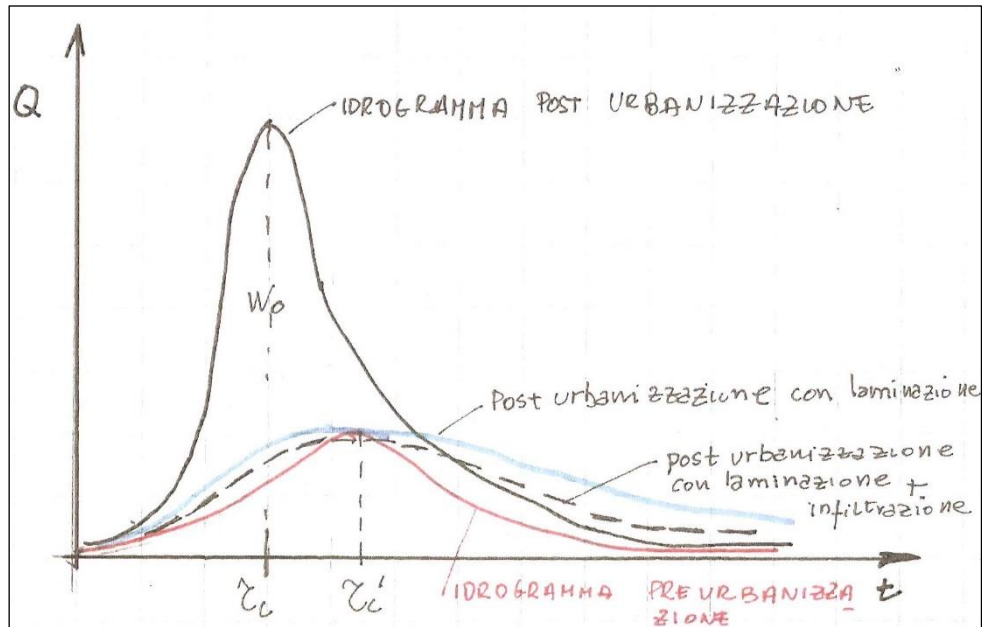 Q
IDROGRAMMA POST URBANIZZAZIONE
Wo
post urbanizzazione con laminazione
post urbanizzazione
con laminazione +
infiltrazione
τc
τc'
IDROGRAMMA PREURBANIZZA
ZIONE
t